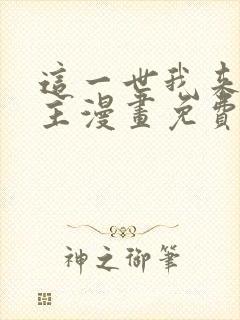 這一世我來
主漫畫免費
神之御筆